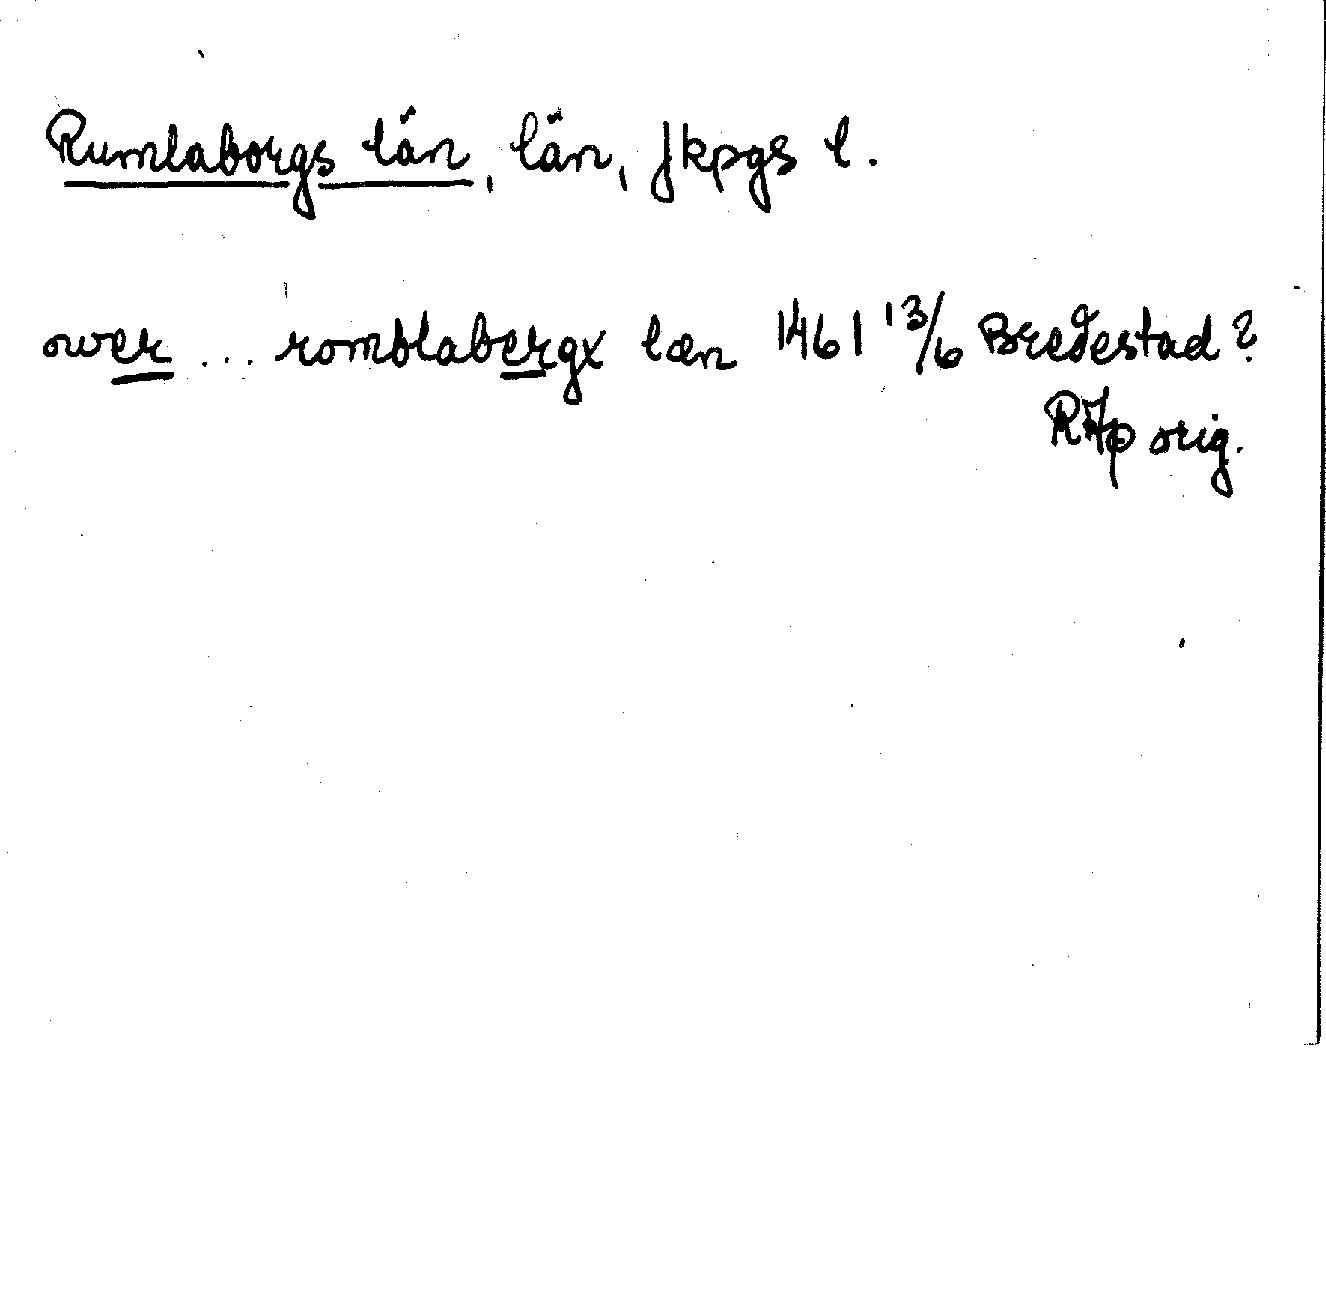 Rumlaborgs län, län, Jkpgs l.
ower ... romblabergx læn 1461 13/6 Bredestad?
RAp orig.